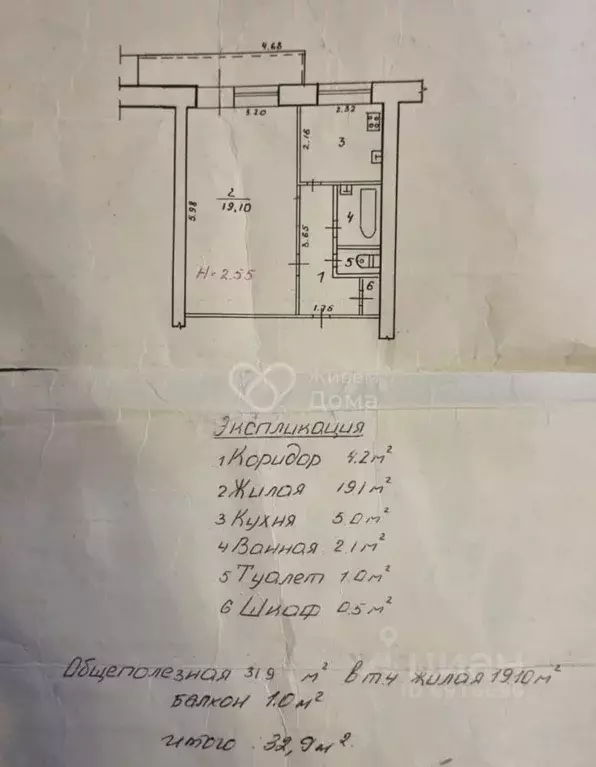 4.68
3.20
2.32
2.16
3
2
19,10
5.98
4
3.65
5
H=2.55
1
6
1.76
Живем
Дома
Экспликация
1 Коридор 4.2 м²
2 Жилая 19.1 м²
3 Кухня 5.0 м²
4 Ванная 2.1 м²
5 Туалет 1.0 м²
6 Шкаф 0.5 м²
Общеполезная 31.9 м² в т.ч жилая 19.10 м²
балкон 1.0 м²
итого : 32,9 м².
циан